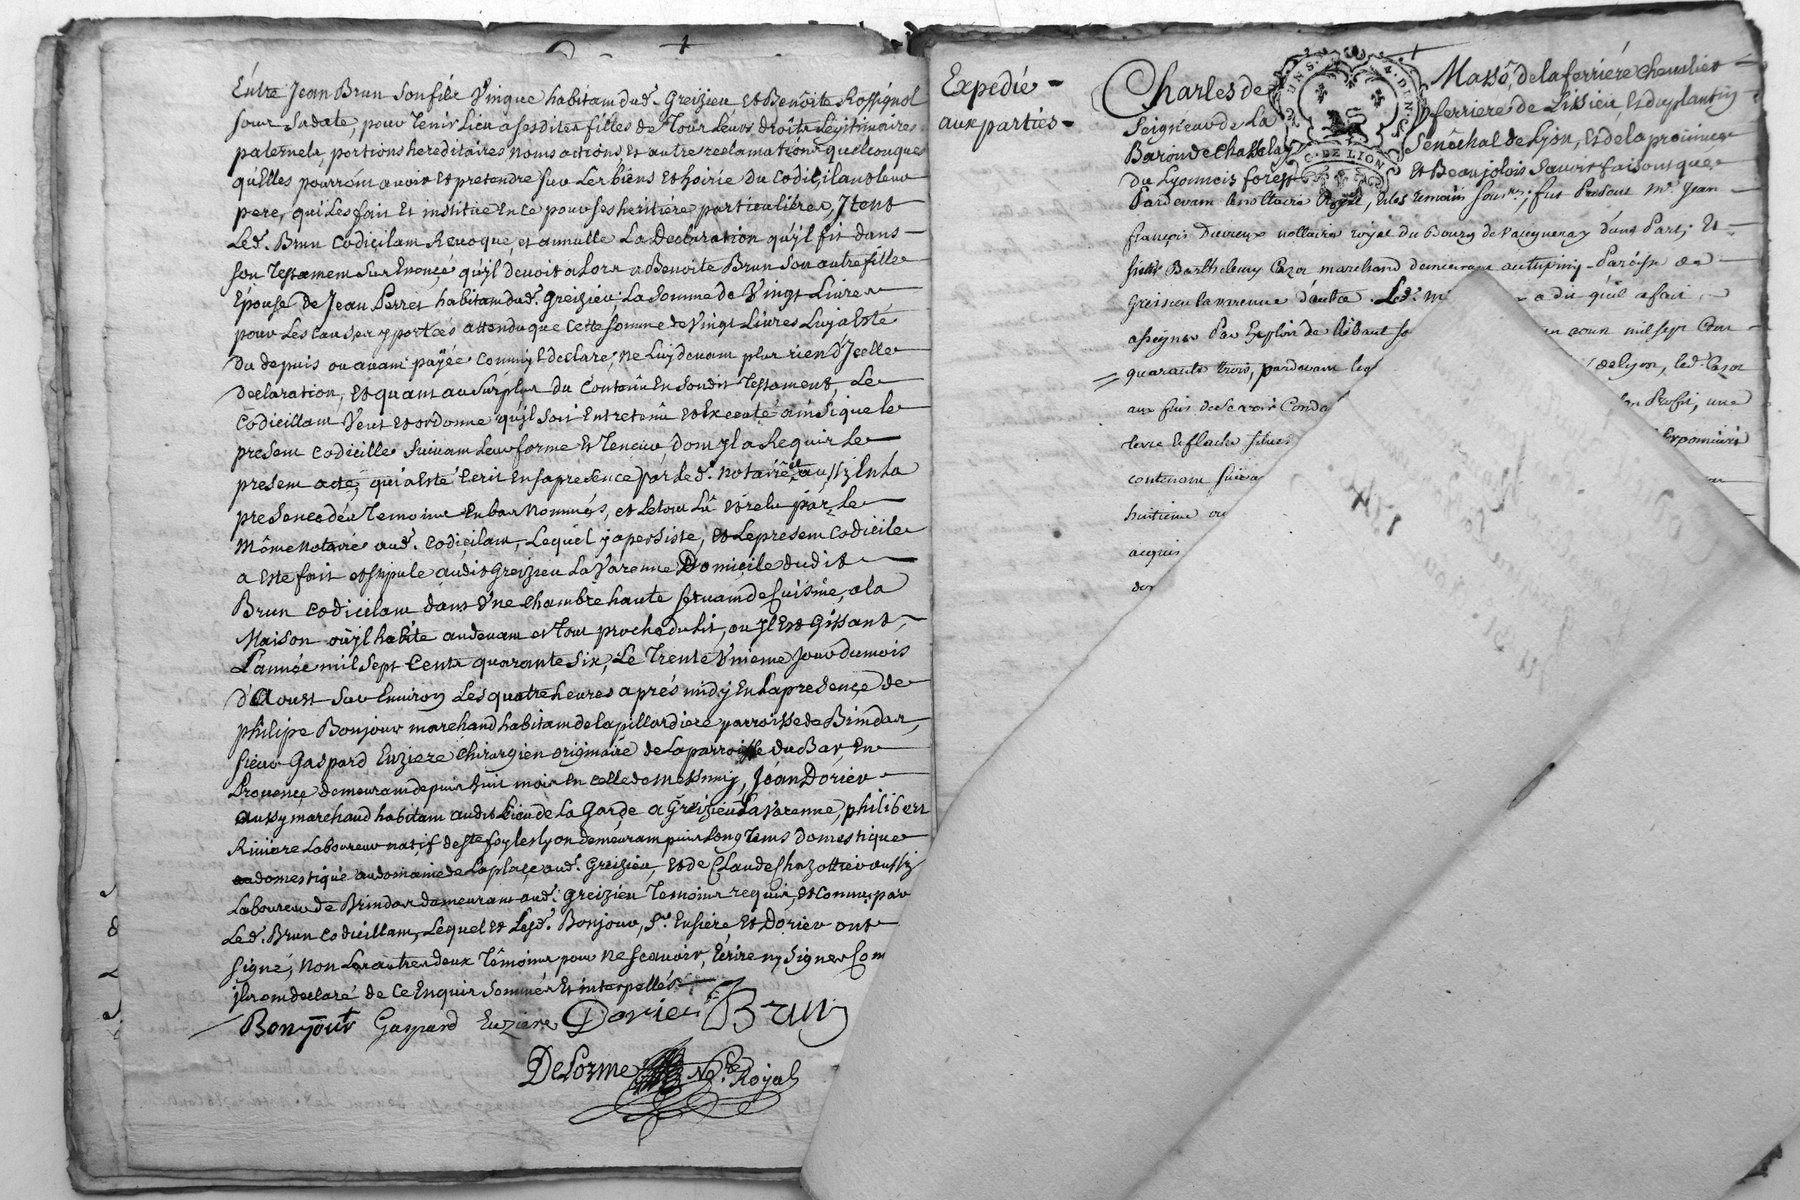 Entre Jean Brun son fils Unique habitant dud. Greizieu et Benoite Rossignol
sous sa date, pour tenir Lieu a sesdites filles de Tour Leurs droits Legitimaires
paternels, portions hereditaires noms actions, et autres reclamations quelconques
qu'Elles pourront avoir et pretendre sur Les biens et hoirie du codicilant leur
pere, qui Les fait Et institue En ce pour ses heritiéres particuliéres, Item
Led. Brun codicilant Revoque, et annulle La Declaration qu'il fit dans
son Testament sur Enoncé, qu'il devoit alors a Benoite Brun son autre fille
Epouse de Jean Perret habitant dud. Greizieu La somme de Vingt Livres
pour Les causes y portées attendu que cette somme de Vingt Livres Luy a Esté
du depuis ou avant payée comm'il declare, ne Luy devant plus rien d'Icelle
Declaration, Et quant au surplus du Contenû En sondit Testament, Le
codicillant Veut et ordonne qu'il soit Entretenû et Executé ainsi que le
present codicille suivant Leur forme Et Teneur, dont il a Requis Le
present acte, qui a Esté Ecrit En sa presence par Led. notaire et aussy En La
presence des Temoins En bas Nommés, et Letout Lû et relu par Le
même Notaire aud. codicilant, Lequel y a persisté, et Le present codicile
a Esté fait et stipulé audit Greizieu La Varenne Domicile dudit
Brun codicilant dans Une chambre haute servant de Cuisine, a la
Maison ou il habite au devant et Tout proche du Lit, ou Il Est Gissant,
L'année mil sept Cents quarante six, Le Trente Unieme Jour du mois
d'Aoust Sur Environ Les quatre heures aprés midy En La presence de
philipe Bonjour marchand habitant de la pillardiere parroisse de Brindas,
sieur Gaspard Euziere chirurgien originaire de La parroisse du Bar En
Provence demeurant depuis huit mois En celle de Messimy, Jean Dorier
aussy marchand habitant audit Lieu de La Garde a Greizieu La Varenne, philibert
Riviere Laboureur natif de Ste foy les Lyon demeurant puis Long Tems domestique
au domaine de La place aud. Greizieu, Et de Claude Chazottier aussy
Laboureur de Brindas demeurant aud. Greizieu Temoins requis, et Connus par
Led. Brun codicillant, Lequel et Lesd. Bonjour, Sr. Eusiere, Et Dorier ont
signé, Non Les autres deux Témoins pour ne sçavoir, Ecrire ny signer Com
ils ont declaré de ce Enquis sommés Et interpellés
Bonjour Gaspard Euziere Dorier J Brun
Delorme Nore. Royal
Expedié
aux parties
Charles de Massô, de la ferriére Chevalier
Seigneur de La ferriere de Lissieu, Et du plantin
Baron de Chasselay Senêchal de Lyon, et de la province
du Lyonnois forest Et Beaujolois Sçavoir faisons que
Pardevant le nottaire Royal, et les temoins sous.nés; fut Present Mr. Jean
françois nottaire royal du Bourg de Vaugneray d'une Part; Et
sieur Barthelemy Cazot marchand demeurant au tupiny Paroisse de
Greisieu la varenne d'autre. Led. a dit qu'il a fait
assigner Par Exploit de aoust mil sept Cent
quarante trois, pardevant les de Lyon, led. Cazot
aux fins de se voir Conda Profit, une
terre
contenant suiva
huitieme ou
acquis
don